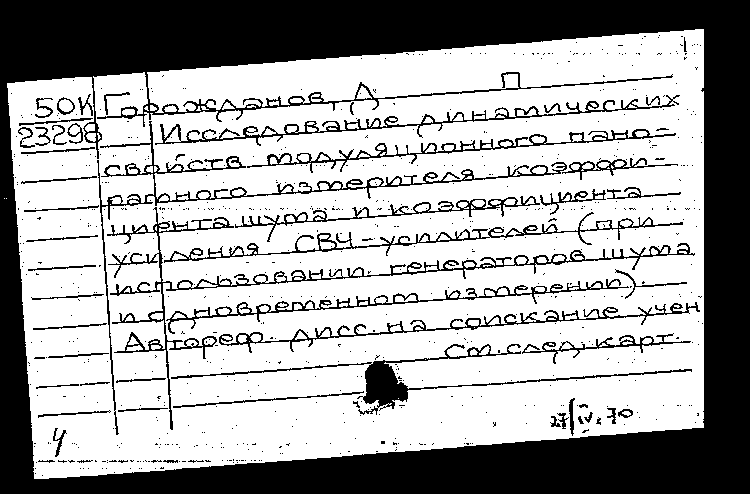 П
50К Горожданов, Д
23298 Исследование динамических
свойств модуляционного пано-
рамного измерителя коэффи-
циента шума и коэффициента
усиления СВЧ-усилителей (при
использовании генераторов шума
и одновременном измерении).
Автореф. дисс. на соискание учен
См. след. карт.
27/IV.70